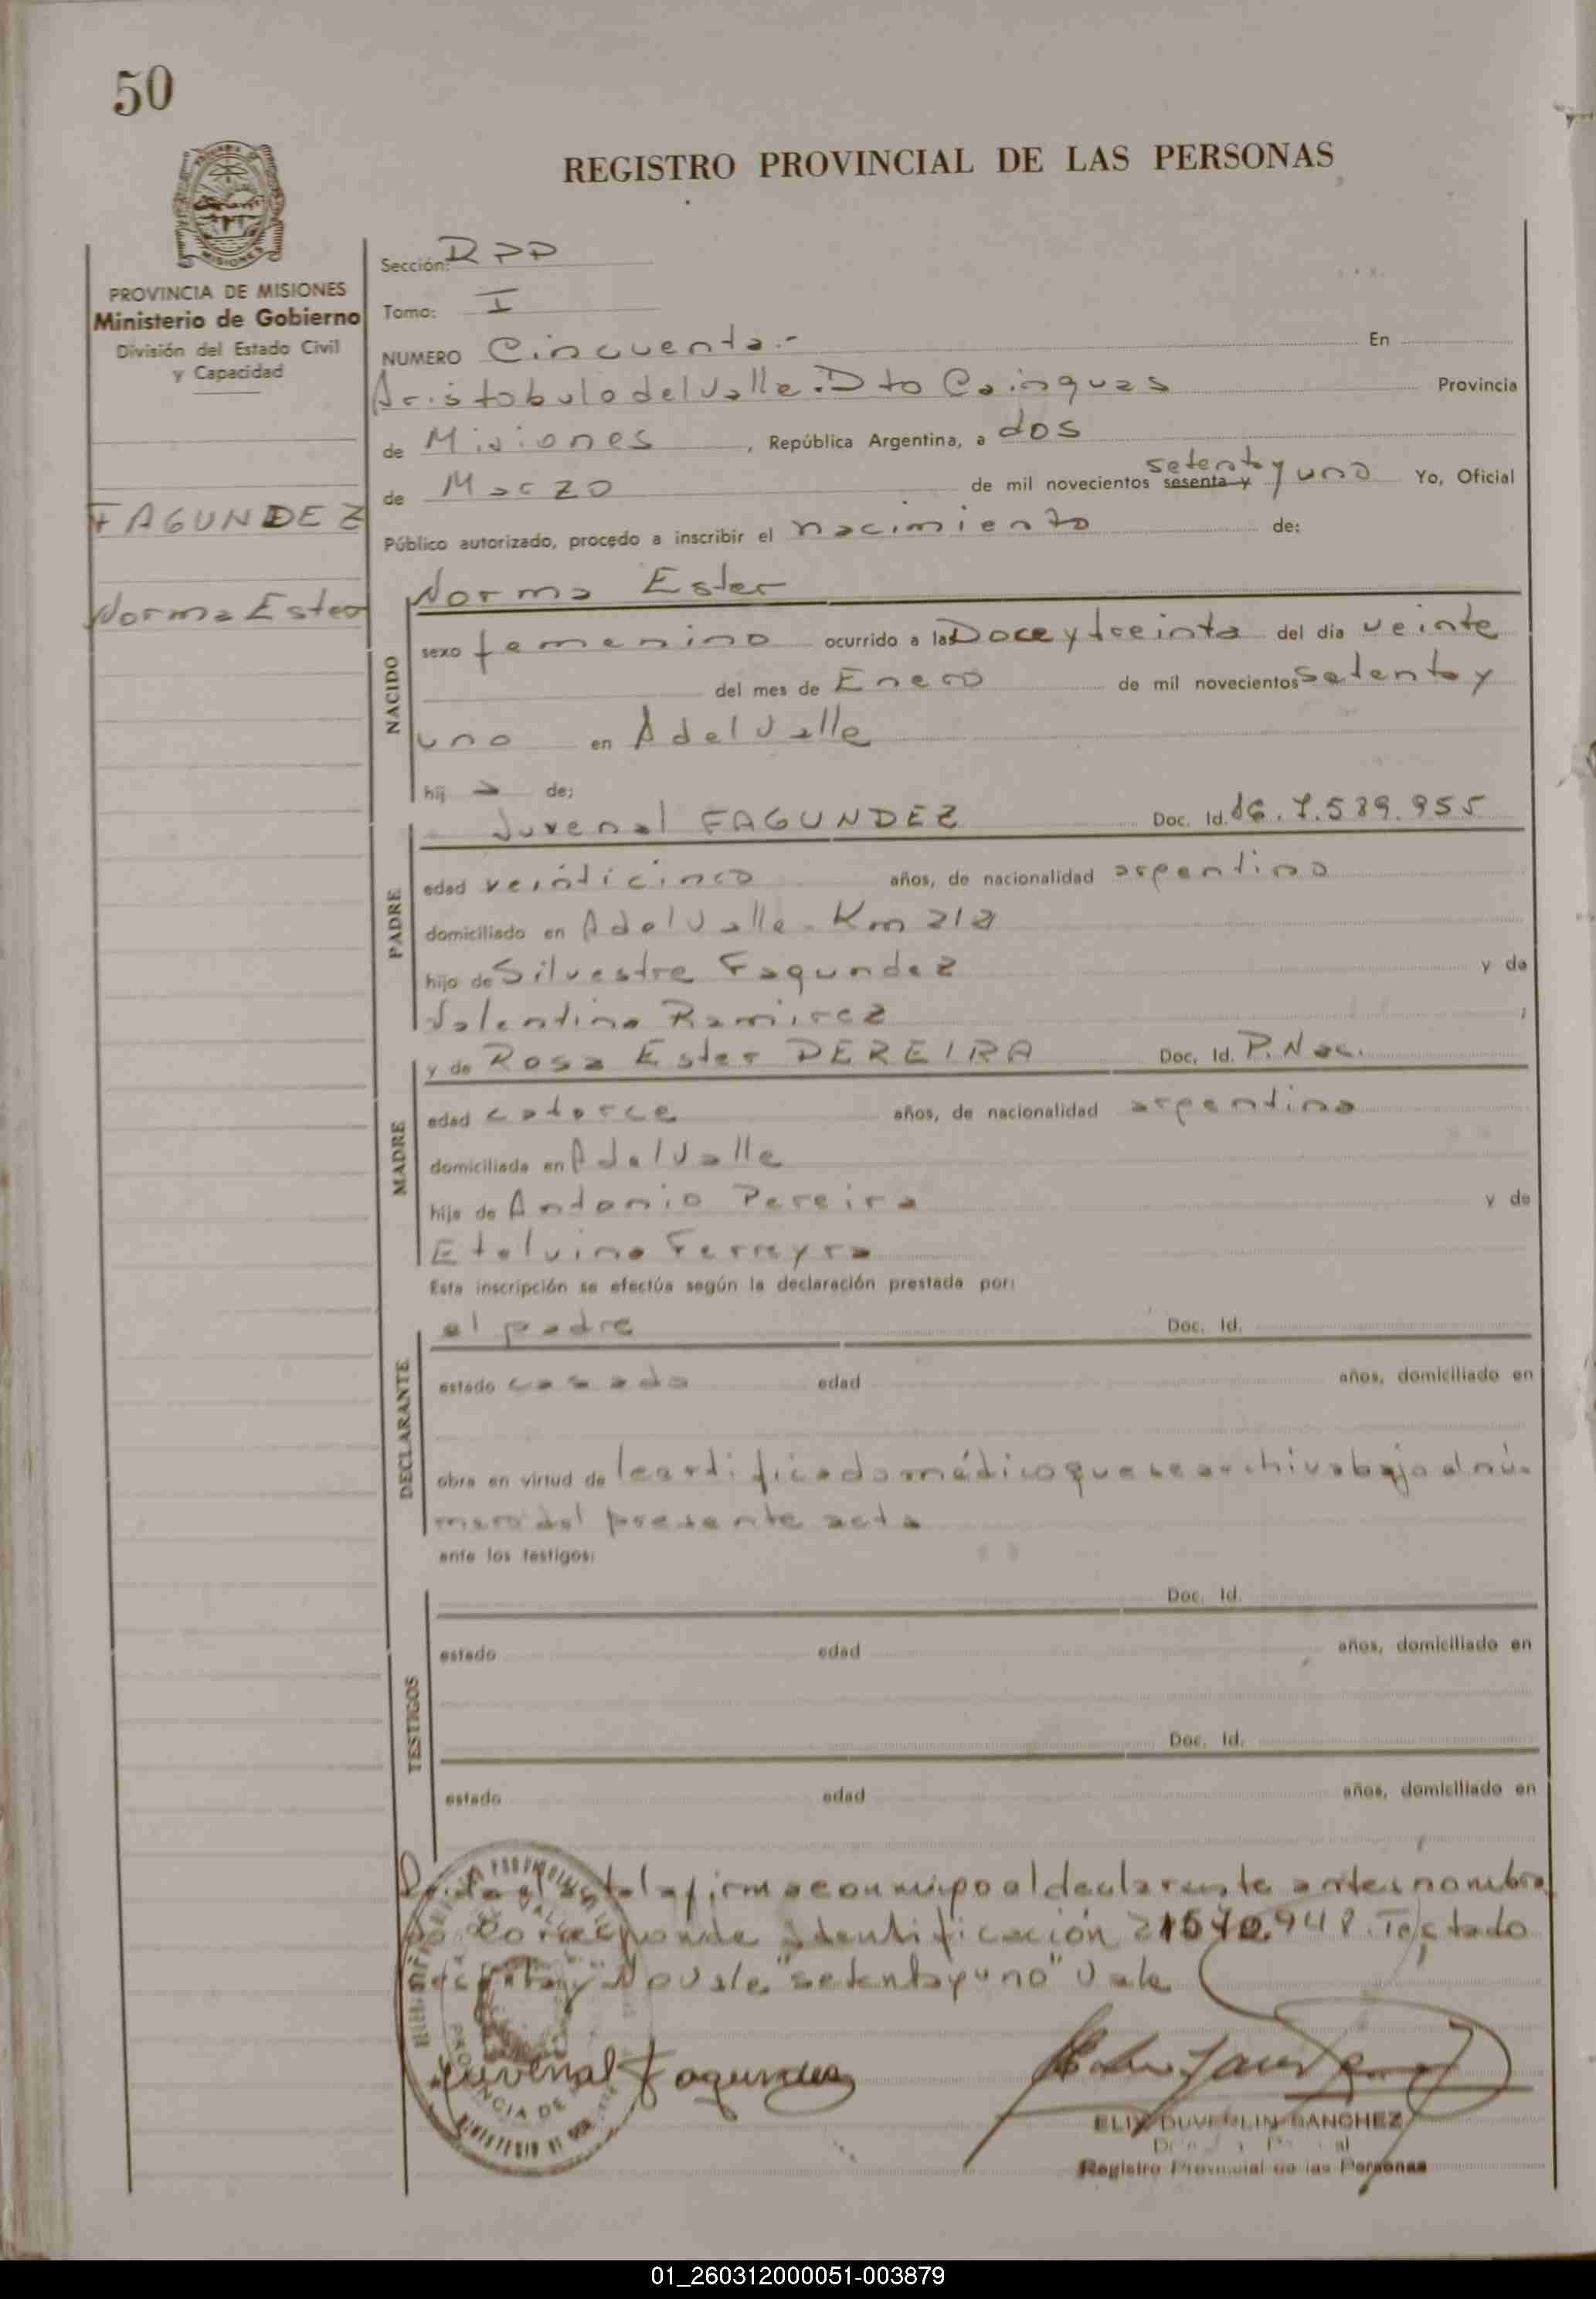 50
REGISTRO PROVINCIAL DE LAS PERSONAS
PROVINCIA DE MISIONES
Ministerio de Gobierno
División del Estado Civil
y Capacidad
FAGUNDEZ
Norma Ester
Sección: RPP
Tomo: I
NUMERO Cincuenta.- En
Aristobulo del Valle. Dto Cainguas Provincia
de Misiones, República Argentina, a dos
de Marzo de mil novecientos sesenta y setenta y uno Yo, Oficial
Público autorizado, procedo a inscribir el nacimiento de:
NACIDO
Norma Ester
sexo femenino ocurrido a las Doce y treinta del día veinte
del mes de Enero de mil novecientos setenta y
uno en A del Valle
hij a de:
PADRE
Juvenal FAGUNDEZ Doc. Id. 7.589.955
edad veinticinco años, de nacionalidad argentino
domiciliado en A del Valle - Km 212
hijo de Silvestre Fagundez y de
Valentina Ramirez ;
MADRE
y de Rosa Ester PEREIRA Doc. Id. P. Nac.
edad catorce años, de nacionalidad argentina
domiciliada en A del Valle
hija de Antonio Pereira y de
Etelvina Ferreyra
Esta inscripción se efectúa según la declaración prestada por:
DECLARANTE
el padre Doc. Id.
estado casado edad años, domiciliado en
obra en virtud de certificado médico que se archiva bajo el nú-
mero del presente acta
ante los testigos:
TESTIGOS
Doc. Id.
estado edad años, domiciliado en
Doc. Id.
estado edad años, domiciliado en
el acta la firma conmigo el declarante ante nombra
do Corresponde Identificación 21.540.948. Testado
"sesenta y" No vale "setenta y uno" Vale
Juvenal Fagundez
PROVINCIA DE
ELIX DUVERLIN SANCHEZ
Registro Provincial de las Personas
01_260312000051-003879